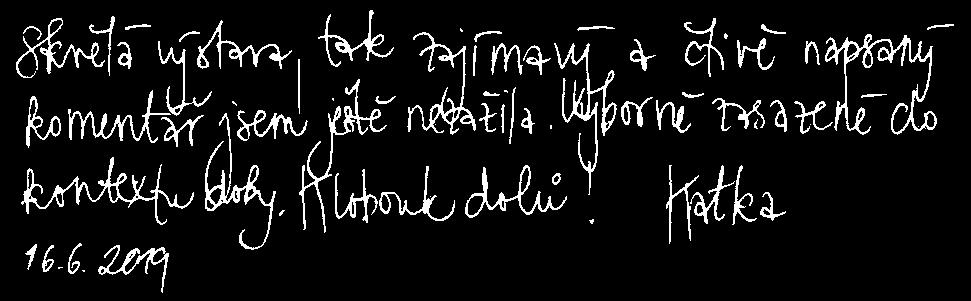 Skvělá výstava, tak zajímavý a čtivě napsaný
komentář jsem ještě nezažila. Výborně zasazené do
kontextu doby. Klobouk dolů! Katka
16.6. 2019